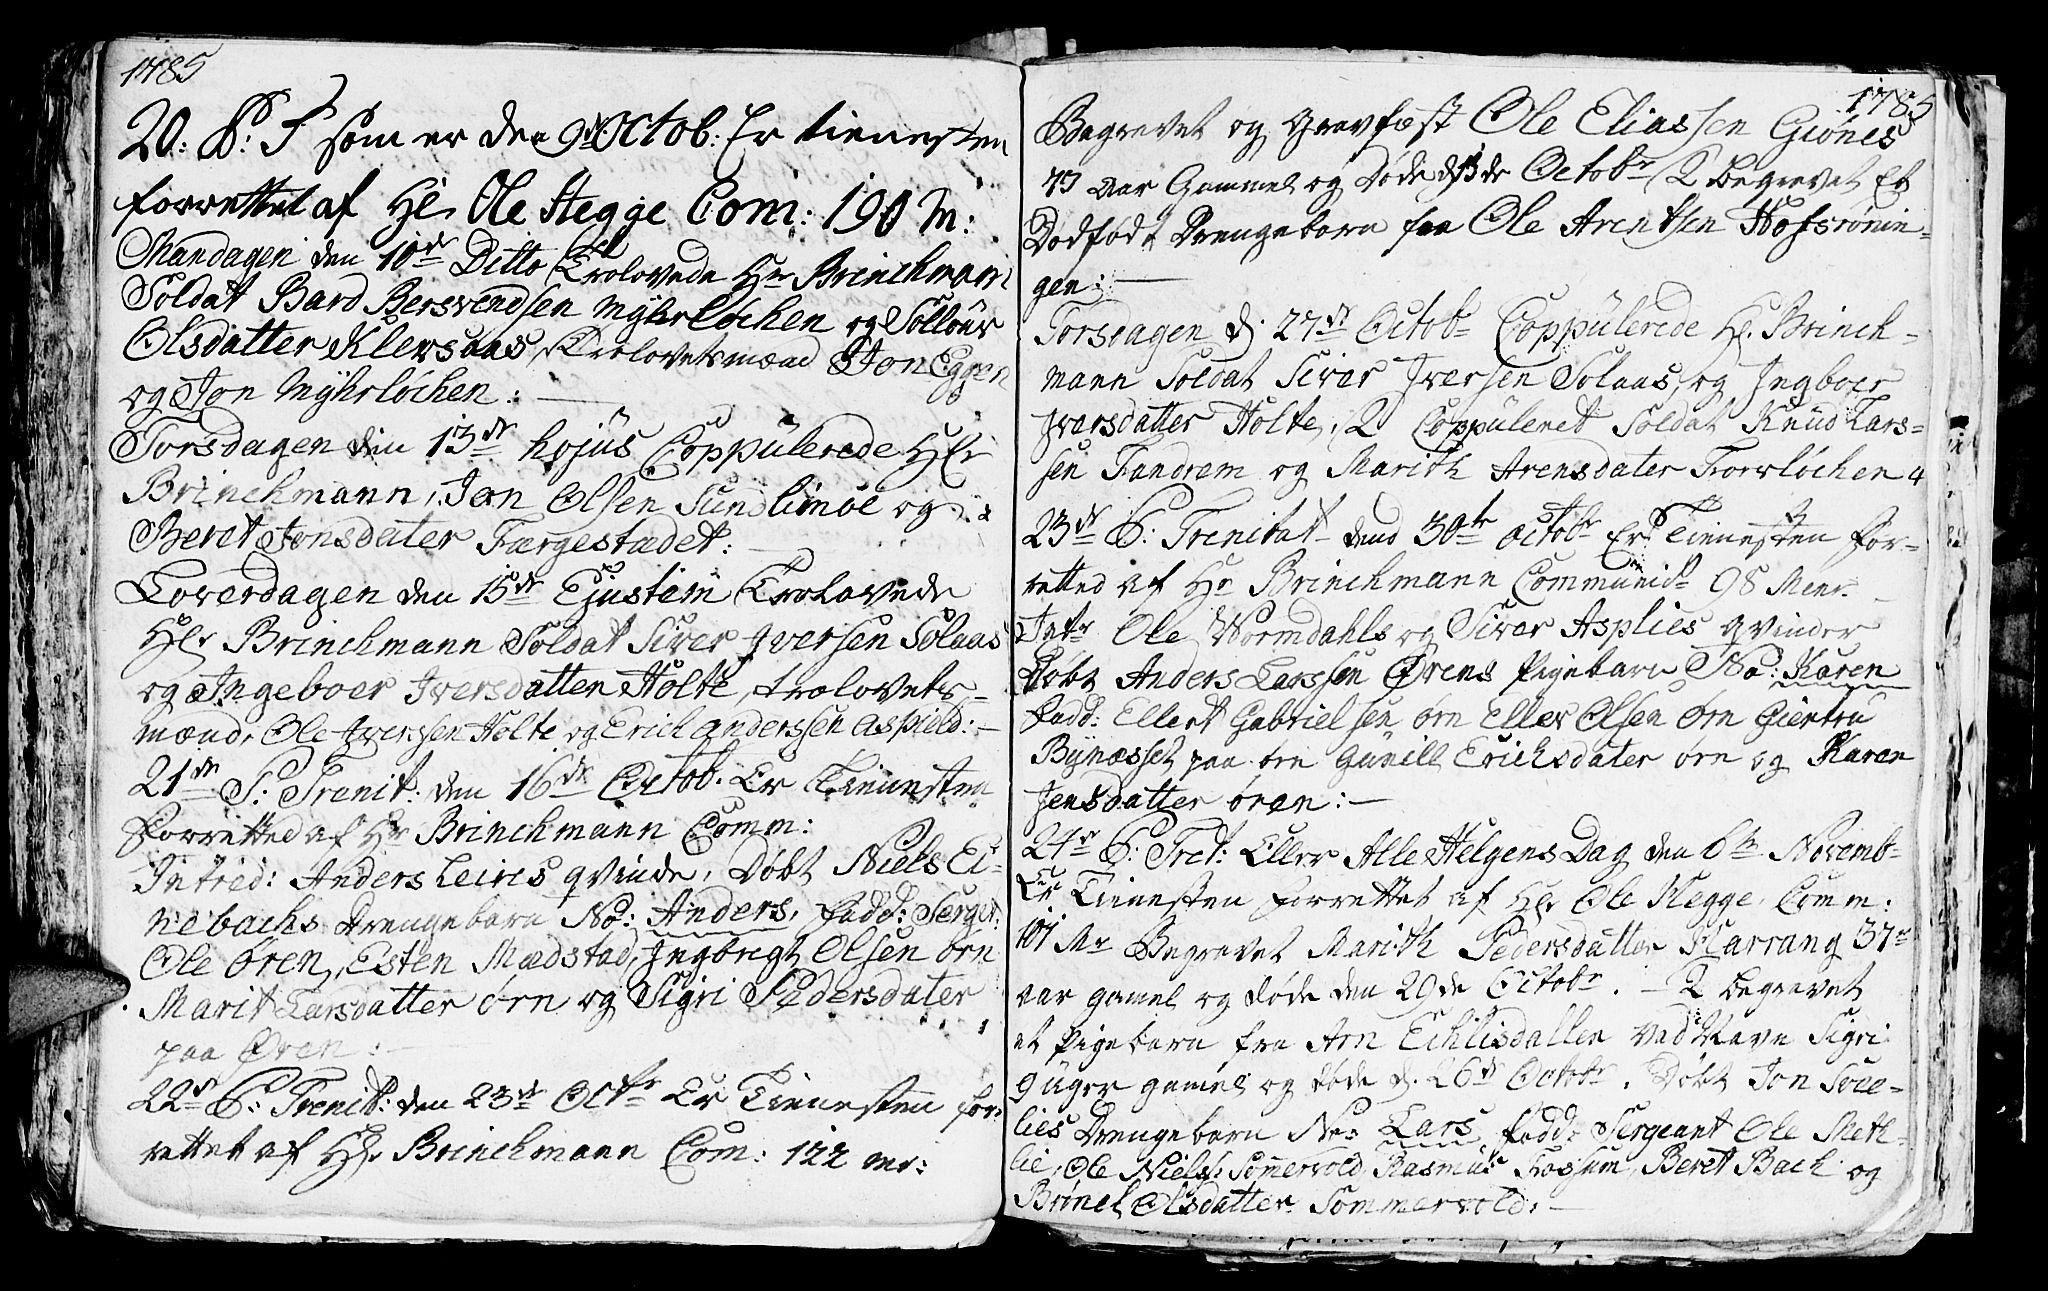 1785
20: S: T som er den 9d Octob: Er tienesten
forrettet af Hl Ole Stegge Com: 190 M:
Mandagen den 10de Ditto Trolovede Hr Brinchmann
Soldat Bard Bersvendsen Myhrløchen og Sollour
Olsdatter Klevsaas, Trolovetsmænd Jon Eggen
og Jon Myhrløchen:
Torsdagen den 13de hujus Coppulerede Hl
Brinchmann, Jon Olsen Sundlimoe og
Beret Jonsdater Færgestædet:
Loverdagen den 15de Ejustem Trolovede
Hlr Brinchmann Soldat Siver Iversen Solaas
og Ingeboer Iversdatten Holte, trolovets-
mænd, Ole Iverssen Holte og Erich Anderssen Aspield:
21de S: Trenit: den 16de Octob: Er Tienesten
forretted af Hr Brinchmann Comm:
Introd: Anders Leires qvinde, Døbt Niels Ei-
nebachs Drengebarn No: Anders, fadd: Serget:
Ole Øren, Esten Mædstad, Ingbrigt Olsen Ørn
Marit Larsdatter Ørn og Sigri Pedersdater
paa Øren:
22de S: Trenit: den 23de Octbr Er Tienesten for-
rettet af Hl Brinchmann Com: 122 mr:
1785
Begravet og Gravfæst Ole Eliassen Giønes
73 Aar Gammel og Døde d 13de Octobr, 2 begravet Et
Dødfødt Drengebarn fra Ole Arentsen Hofsrønin-
gen:
Torsdagen d. 27de Octob Coppulerede Hl Brinch-
mann Soldat Siver Iversen Solaas, og Ingboer
Iversdatter Holte, 2 Coppuleret Soldat Knud Lars-
sen Fandrem og Marith Arensdater Frorløchen
23de S: Trenitat dend 30te Octobr Er Tienesten for-
retted af Hr Brinchmann Communic 98 Men:
Intr Ole Wormdahls og Siver Asplies qvinder
Døbt Anders Larssen Ørens Pigebarn No: Karen
fadd: Ellert Gabrielsen Ørn Eller Olsen Ørn Giertru
Bynæsset paa Ørn Gunill Erichsdater Ørn og Karen
Jensdatter Øren:
24de S: Tret: Eller Alle Helgens Dag den 6te Novemb-
Er Tienesten forrettet af Hlr Ole Stegge Comm:
101 Mr Begravet Marith Pedersdatter Harrang 37
aar gamel og døde den 29de Octobr. 2 begravet
et Pigebarn fra Arn Echlisdallen ved Navn Sigri
9 Uger gamel og døde d. 26de Octobr. Døbt Jon Svee-
lies Drengebarn No: Lars fadd: Sergeant Ole Meth-
lie, Ole Niels: Somervold Rasmus Fossum, Beret Bach og
Brønel Olsdatter Sommervold: